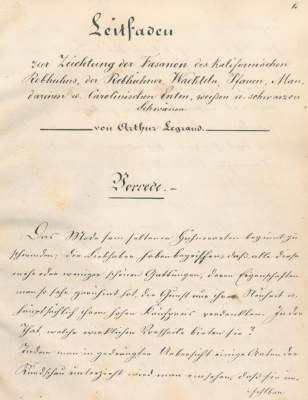 Leitfaden
zur Züchtung der Fasanen des kalifornischen
Rebhuhns, der Rebhühner, Wachteln, Pfauen, Man-
darinen u. Carolinischen Enten, weißen u. schwarzen
Schwänen
von Arthur Legrand.
Vorrede.
Das Mode sein seltener Hühnerarten beginnt zu
schwinden; die Liebhaber haben begriffen, daß alle diese
mehr oder weniger schönen Gattungen, deren Eigenschaften
man so sehr gerühmt hat, die Gunst nur ihrer Neuheit u.
hauptsächlich ihrem hohen Kaufpreis verdankten. In der
That welche wirklichen Vortheile bieten sie?
Indem man in gedrängter Uebersicht einige Arten der
Rundschau unterzieht wird man einsehen, daß sie im-